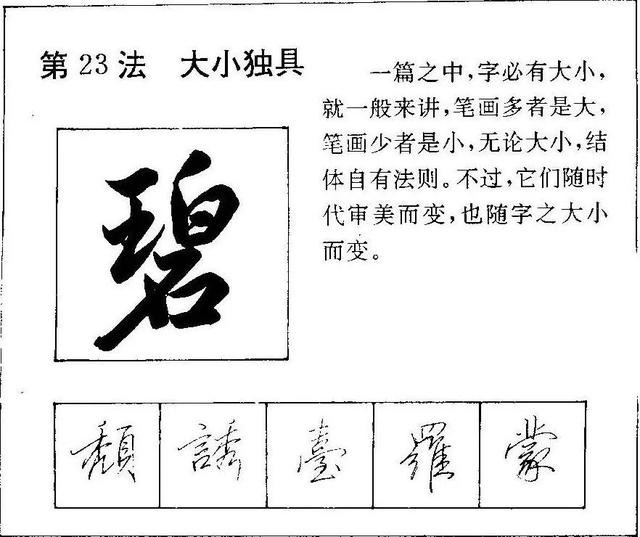 第23法 大小独具
一篇之中,字必有大小,
就一般来讲,笔画多者是大,
笔画少者是小,无论大小,结
体自有法则。不过,它们随时
代审美而变,也随字之大小
而变。
碧
颓 誘 臺 羅 蒙